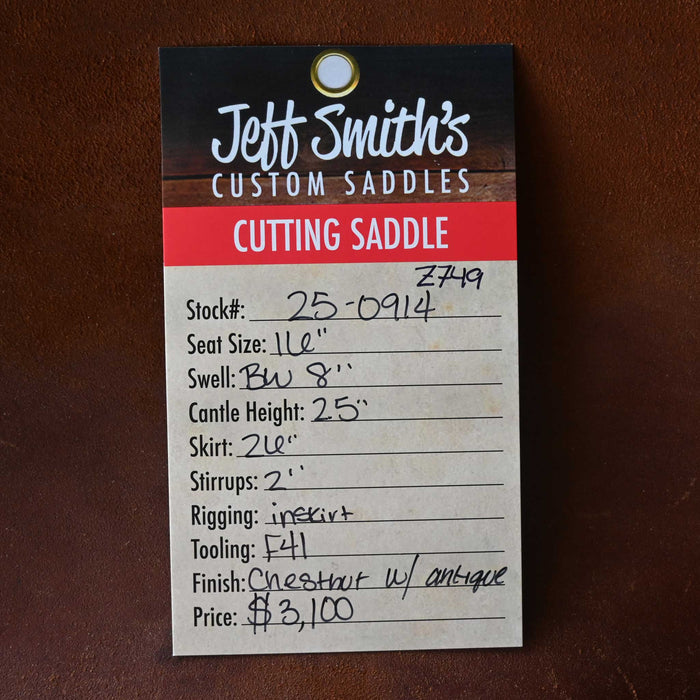 Jeff Smith's
CUSTOM SADDLES
CUTTING SADDLE
Z749
Stock#: 25-0914
Seat Size: 16"
Swell: BW 8"
Cantle Height: 2.5"
Skirt: 26"
Stirrups: 2"
Rigging: inskirt
Tooling: F41
Finish: Chestnut w/ antique
Price: $3,100